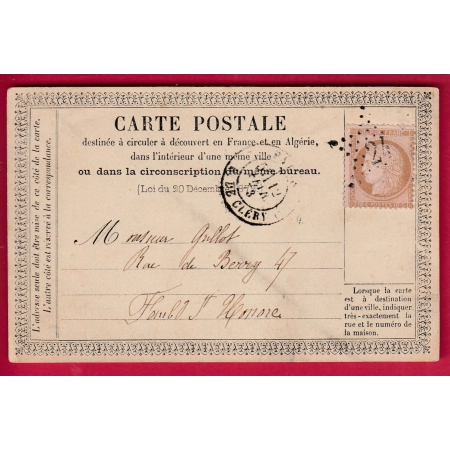 CARTE POSTALE
destinée à circuler à découvert en France et en Algérie,
dans l'intérieur d'une même ville
ou dans la circonscription du même bureau.
[Loi du 20 Décem
DE CLERY
27
L'adresse seule doit être mise de ce côté de la carte.
L'autre côté est réservé à la correspondance.
Monsieur Gullot
Rue de Berry 47
Faub.g St Honoré
Lorsque la carte
est à destination
d'une ville, indiquer
très-exactement la
rue et le numéro de
la maison.